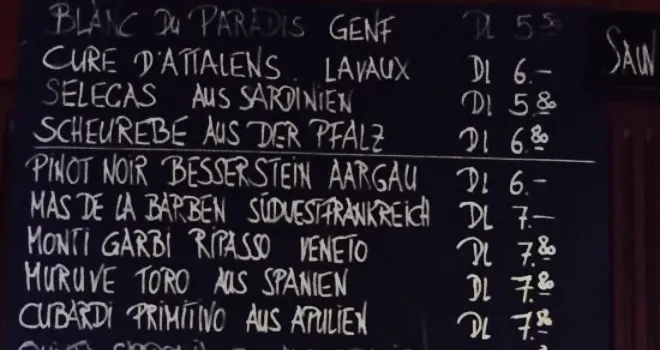 BLANC DU PARADIS GENF DL 5.80
CURE D'ATTALENS LAVAUX DL 6.–
SELEGAS AUS SARDINIEN DL 5.80
SCHEUREBE AUS DER PFALZ DL 6.80
PINOT NOIR BESSERSTEIN AARGAU DL 6.–
MAS DE LA BARBEN SÜDWESTFRANKREICH DL 7.–
MONTI GARBI RIPASSO VENETO DL 7.80
MURUVE TORO AUS SPANIEN DL 7.80
CUBARDI PRIMITIVO AUS APULIEN DL 7.80